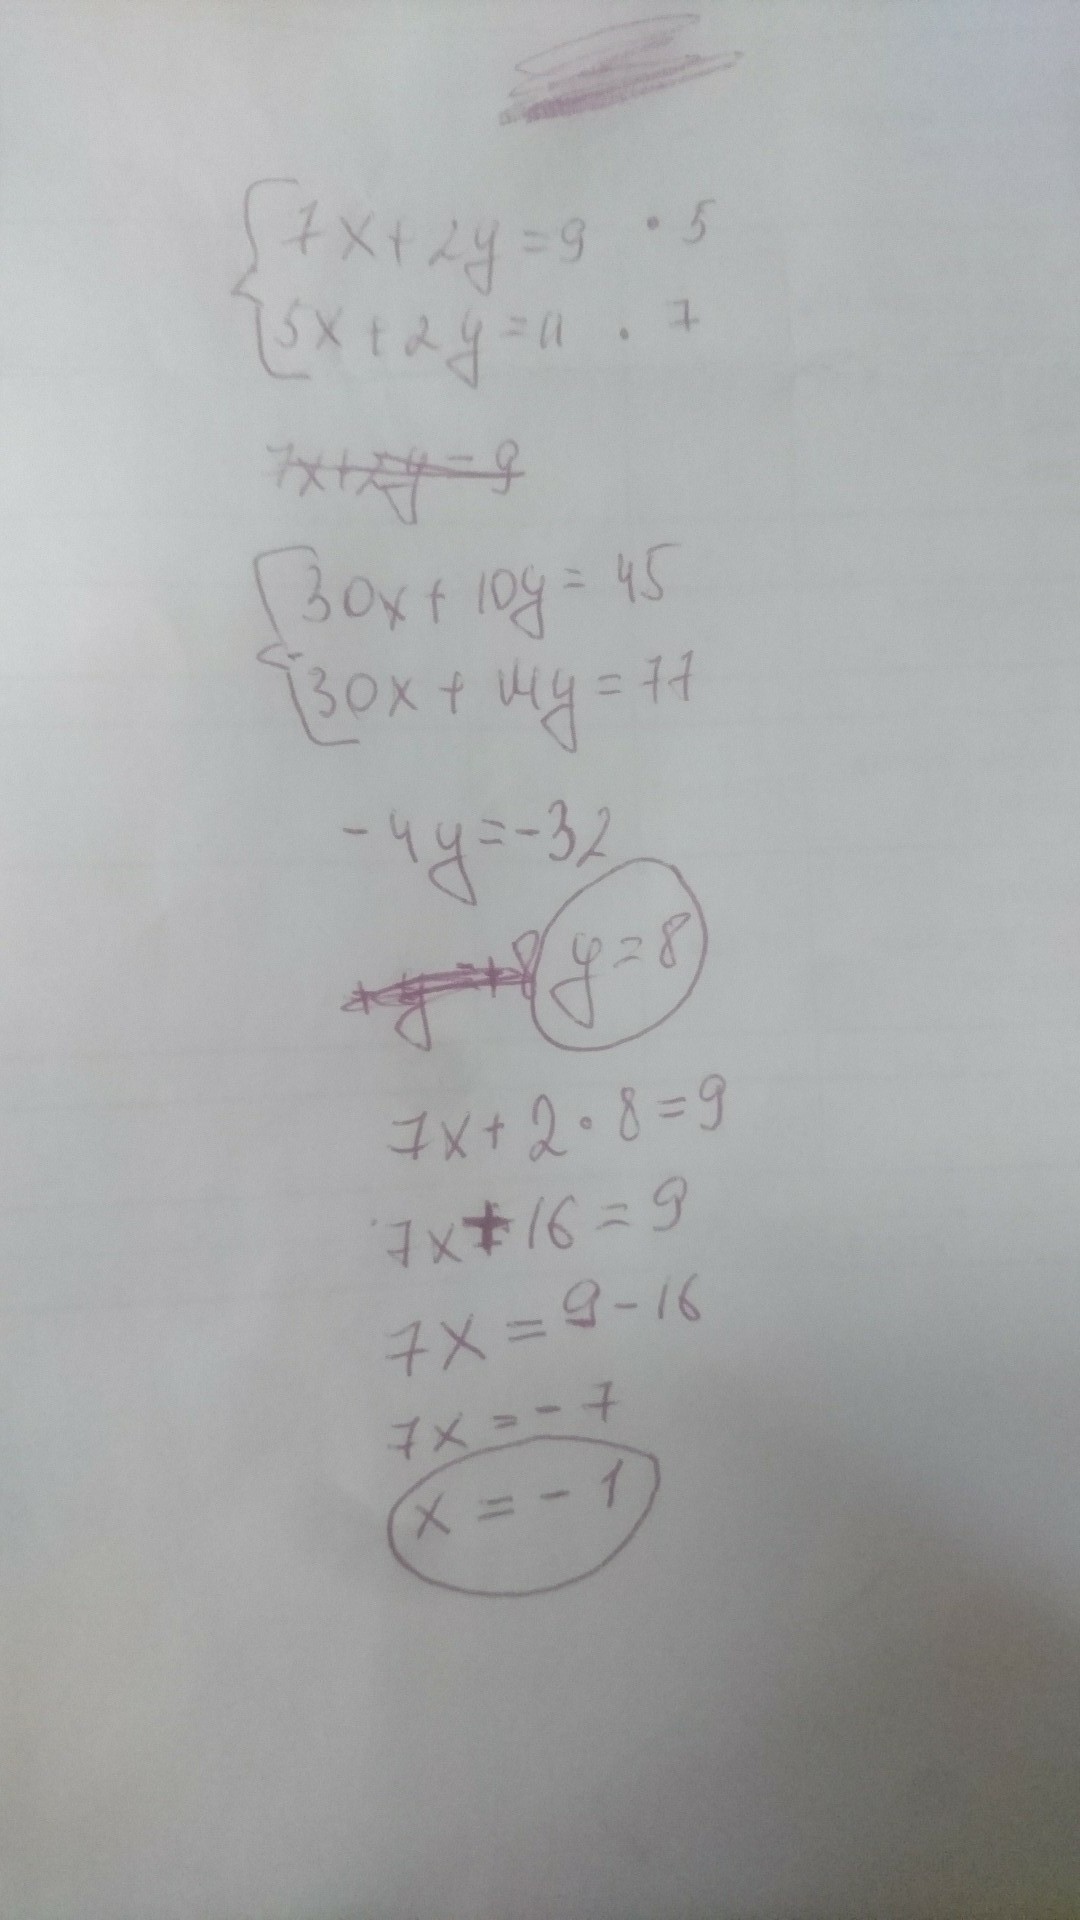 7x+2y=9 · 5
5x+2y=11 · 7
7x+2y=9
30x+10y=45
30x+14y=77
-4y=-32
y=8
7x+2·8=9
7x+16=9
7x=9-16
7x=-7
x=-1